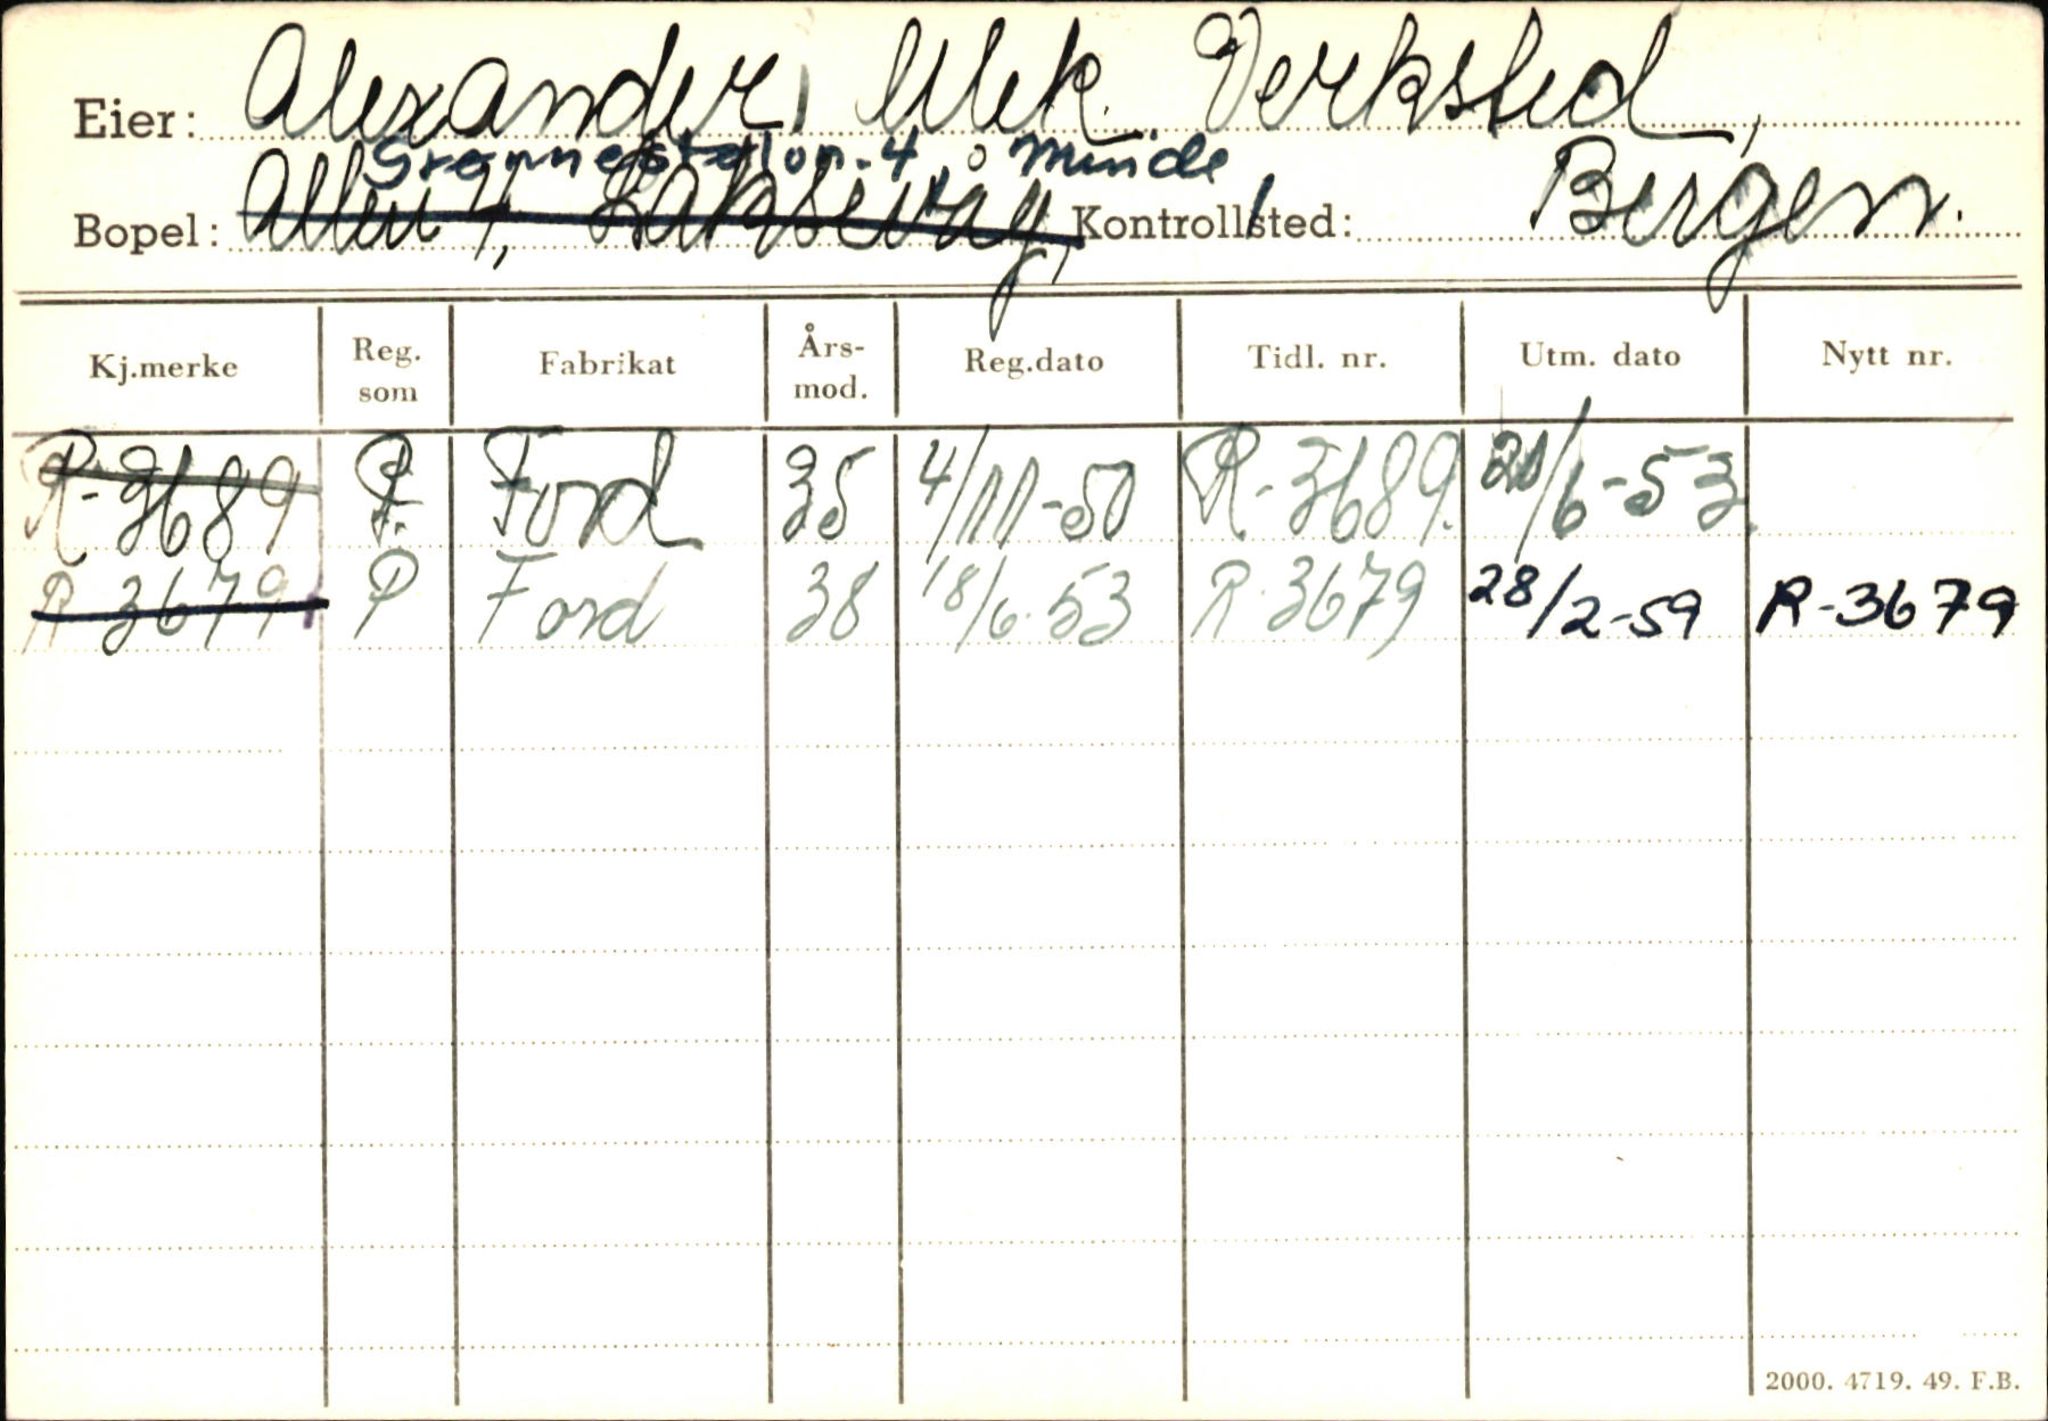 Eier: Alexander, Mek. Verksted,
Minde
Bopel: Alleen 4, Laksevåg, Kontrollsted: Bergen.
Kj.merke Reg. som Fabrikat Års-mod. Reg.dato Tidl. nr. Utm. dato Nytt nr.
R-3689 P. Ford 35 4/11-50 R-3689. 20/6-53.
R-3679 P Ford 38 18/6-53 R-3679 28/2-59 R-3679
2000. 4719. 49. F.B.